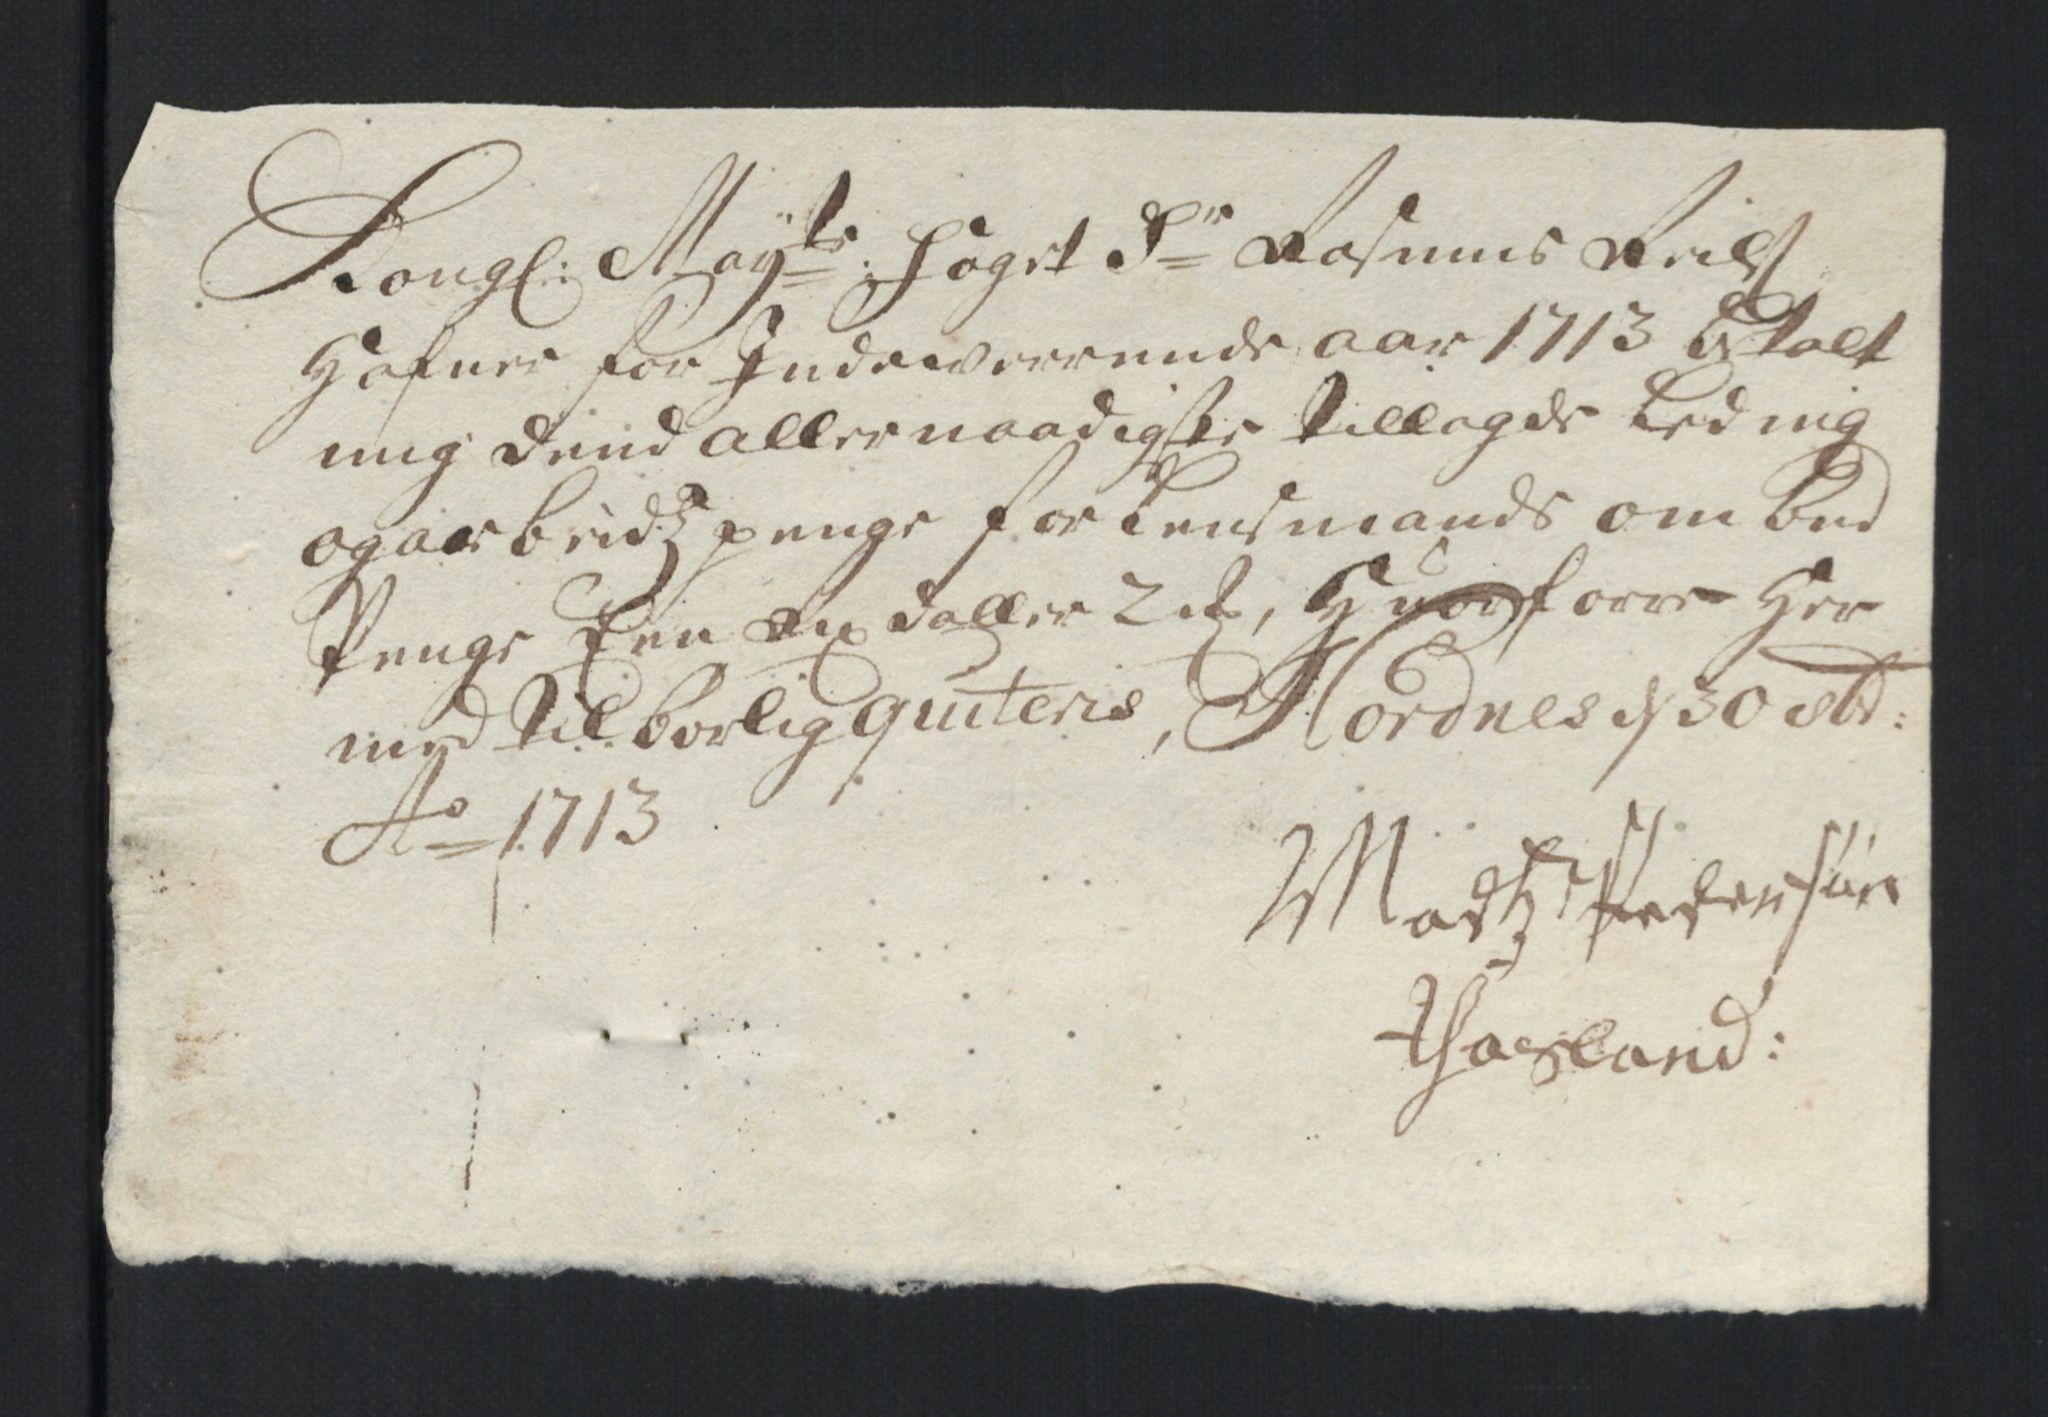 Kongl: Mayts: foget Sr Rasmus Keilst
Hafner for Indeverrende aar 1713 betalt
mig dend allernaadigste tillagde Lednig
og arbeidtz penge for Lensmands om bud
Penge Een Rix daller 2 , Huorforre Her
med tilborlig quiteris, Nordnes d 30 8br:
Ao 1713
Madtz Pedersøn
Hasland: